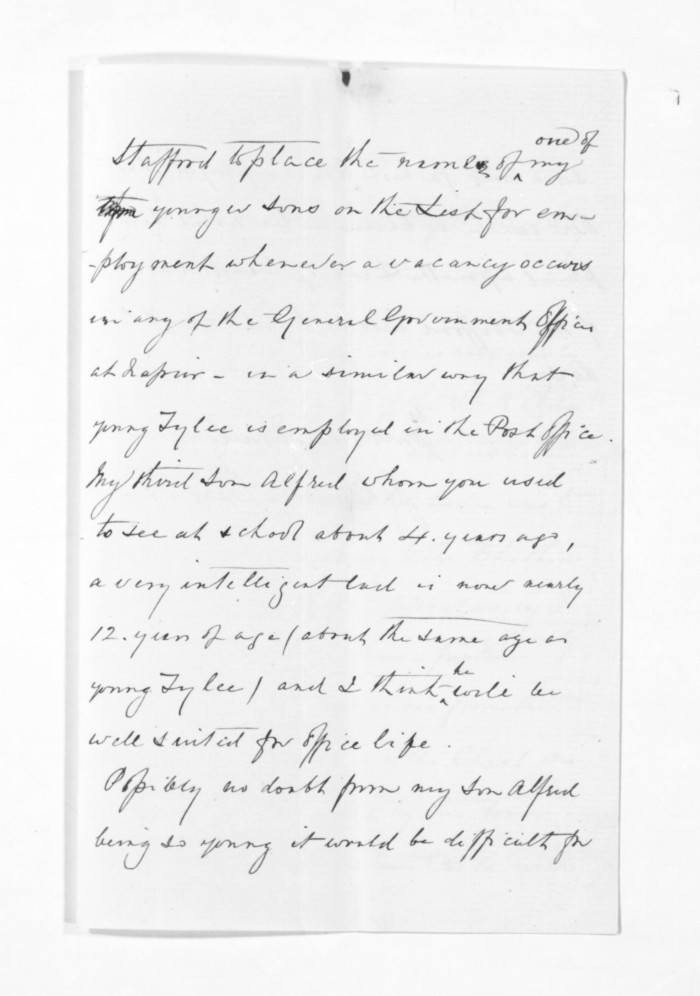 Stafford to place the name of ^one of my
younger sons on the List for em-
-ployment whenever a vacancy occurs
in any of the General Government Offices
at Napier - in a similar way that
young Tylee is employed in the Post Office.
My third Son Alfred whom you used
to see at school about 4. years ago,
a very intelligent lad is now nearly
12. years of age (about the same age as
young Tylee) and I think ^he will be
well suited for office life.
Possibly no doubt from my Son Alfred
being so young it would be difficult for